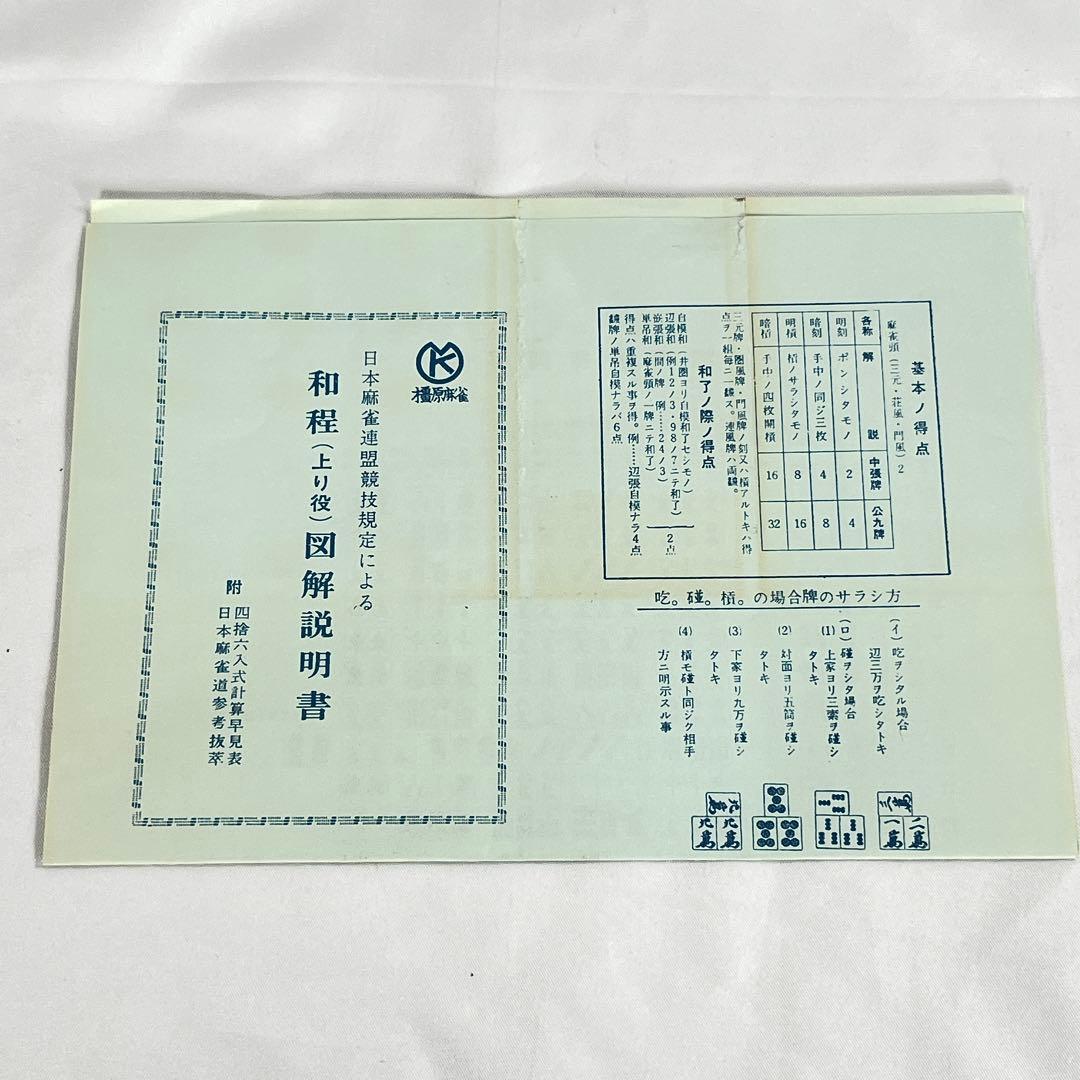 基本ノ得点
麻雀頭(三元・荘風・門風)2
各称 解説 中張牌 公九牌
明刻 ポンシタモノ 2 4
暗刻 手中ノ同ジ三枚 4 8
明槓 槓ノサラシタモノ 8 16
暗槓 手中ノ四枚開槓 16 32
三元牌・圏風牌・門風牌ノ刻又ハ槓アルトキハ得
点ヲ一組毎ニ一翻ス。連風牌ハ両翻。
和了ノ際ノ得点
自模和(井圏ヨリ自模和了セシモノ)
辺張和(例12ノ3・98ノ7ニテ和了)
嵌張和(間ノ牌 例……24ノ3)
単吊和(麻雀頭ノ一牌ニテ和了)
2点
得点ハ重複スル事ヲ得。例……辺張自模ナラ4点
牌ノ単吊自模ナラバ6点
吃。碰。槓。の場合牌のサラシ方
(イ)吃ヲシタル場合
辺三万ヲ吃シタトキ
(ロ)碰ヲシタ場合
(1)上家ヨリ三索ヲ碰シ
タトキ
(2)対面ヨリ五筒ヲ碰シ
タトキ
(3)下家ヨリ九万ヲ碰シ
タトキ
(4)槓モ碰ト同ジク相手
方ニ明示スル事
三萬
一萬 二萬
九萬
九萬 九萬
K
橿原麻雀
日本麻雀連盟競技規定による
和程(上り役)図解説明書
附 四捨六入式計算早見表
日本麻雀道参考抜萃